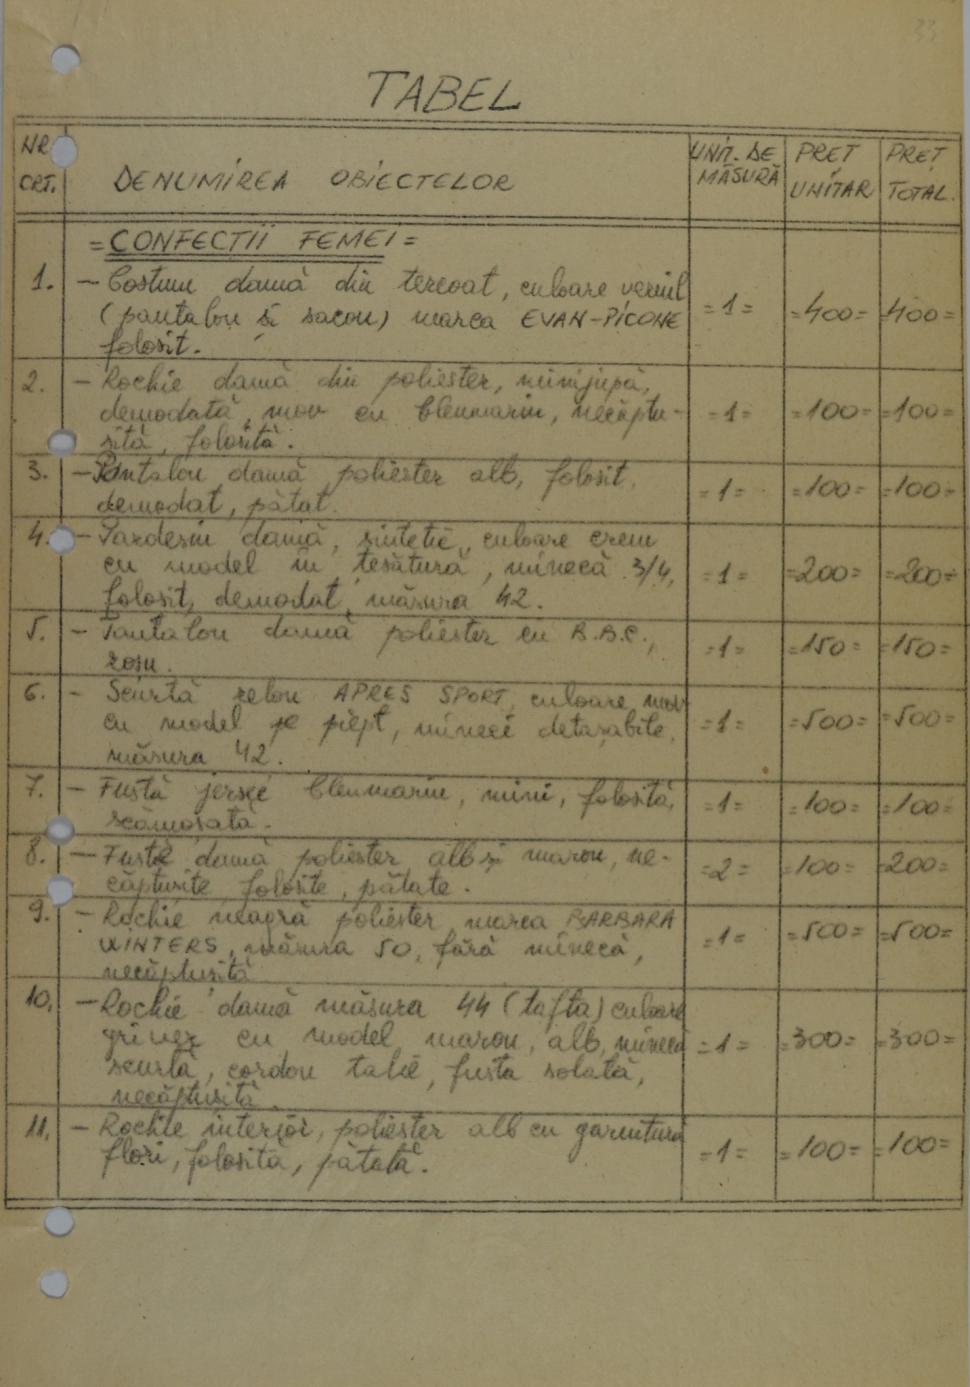 33
TABEL
NR. CRT. DENUMIREA OBIECTELOR UNIT. DE MĂSURĂ PREȚ UNITAR PREȚ TOTAL.
= CONFECTII FEMEI =
1. - Costum damă din tercoat, culoare vernil
(pantalon și sacou) marca EVAN-PICONE =1= =400= =400=
folosit.
2. - Rochie damă din poliester, minijupă,
demodată, mov cu bleumarin, necăptu- =1= =100= =100=
sită, folosită.
3. - Pantalon damă poliester alb, folosit,
demodat, pătat. =1= =100= =100=
4. - Pardesiu damă, sintetic, culoare crem
cu model în țesătură, mînecă 3/4, =1= =200= =200=
folosit, demodat, măsura 42.
5. - Pantalon damă poliester cu B.B.C.,
roșu. =1= =150= =150=
6. - Scurtă relon APRES SPORT, culoare mov
cu model pe piept, mîneci detașabile, =1= =500= =500=
măsura 42.
7. - Fustă jerse bleumarin, mini, folosită,
scămoșată. =1= =100= =100=
8. - Fuste damă poliester alb și maron, ne-
căptușite, folosite, pătate. =2= =100= =200=
9. - Rochie neagră poliester, marca BARBARA
WINTERS, măsura 50, fără mînecă, =1= =500= =500=
necăptușită
10. - Rochie damă măsura 44 (tafta) culoare
cu model maron, alb, mînecă =1= =300= =300=
scurtă, cordon talie, fusta solată,
necăptușită.
11. - Rochie interior, poliester alb cu garnitură
flori, folosită, pătată. =1= =100= =100=